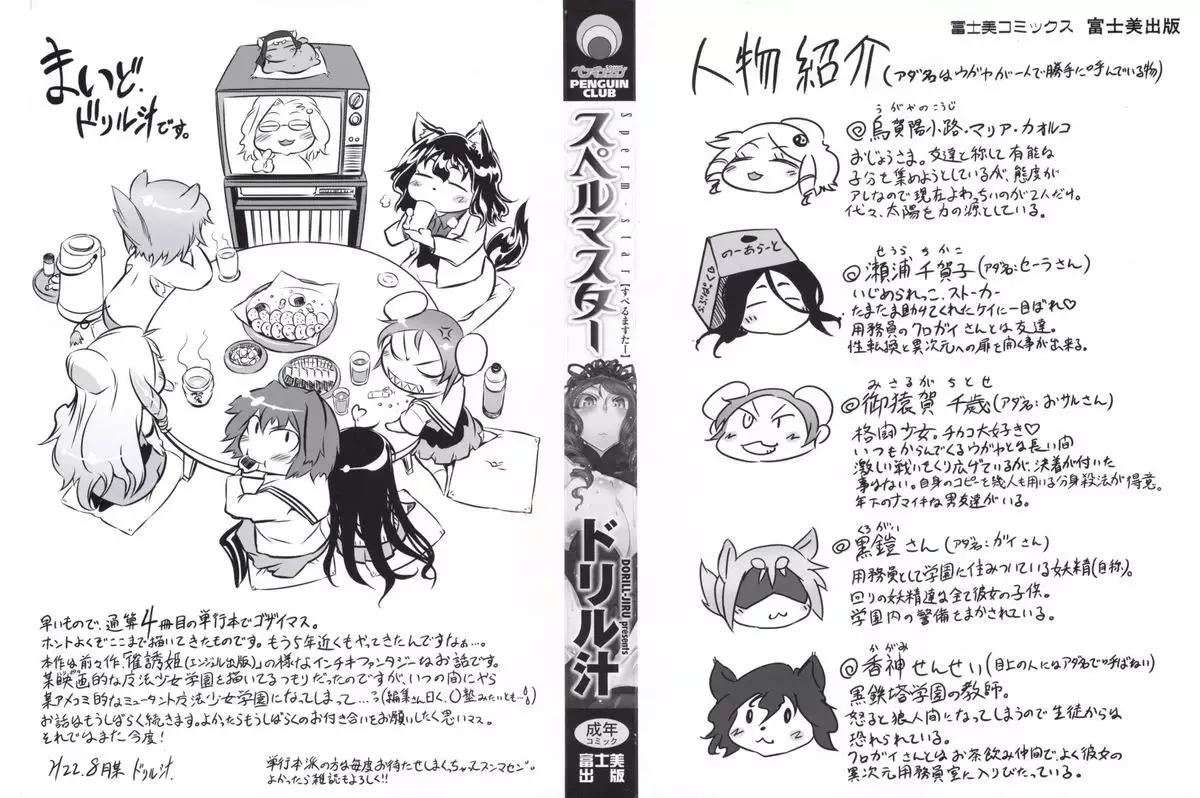 まいど、
ドリル汁です。
早いもので、通算4冊目の単行本でゴザイマス。
ホントよくぞここまで描いてきたものです。もう5年近くもやってきたんですなぁ…。
本作は前々作、「催誘姫(エンジェル出版)」の様なインチキファンタジーなお話です。
某映画的な魔法少女学園を描いてるつもりだったのですが、いつの間にやら
某アメコミ的なミュータント魔法少女学園になってしまって…っ(編集さん曰く、〇塾みたいとも…)
お話はもうしばらく続きます。よかったらもうしばらくのお付き合いをお願いしたく思いマス。
それではまた今度!
H22.8月某 ドリル汁
単行本派の方は毎度お待たせしまくっちゃってスンマセン。
よかったら雑誌もよろしく!!
COMIC
ペンギンクラブ
PENGUIN
CLUB
スペルマスター
Sperm・Star
【すぺるますたー】
ドリル汁
DORILL-JIRU presents
成年
コミック
富士美
出版
富士美コミックス 富士美出版
人物紹介(アダ名はウガヤが一人で勝手に呼んでいる物)
うがやのこうじ
@烏賀陽小路・マリア・カオルコ
おじょうさま。友達と称して有能な
子分を集めようとしているが、態度が
アレなので現在よわっちいのが2人だけ。
代々、太陽を力の源としている。
のーあらーと
せうら ちかこ
@瀬浦千賀子(アダ名:セーラさん)
いじめられっこ、ストーカー
たまたま助けてくれたケイに一目ぼれ♡
用務員のクロガイさんとは友達。
性転換と異次元への扉を開く事が出来る。
みさるが ちとせ
@御猿賀 千歳(アダ名:おサルさん)
格闘少女。チカコ大好き♡
いつもからんでくるウガヤとは長い間
激しい戦いをくり広げているが、決着が付いた
事はない。自身のコピーを幾人も用いる分身殺法が得意。
年下のナマイキな男友達がいる。
くろがい
@黒鎧さん(アダ名:ガイさん)
用務員として学園に住みついている妖精(自称)。
回りの妖精達は全て彼女の子供。
学園内の警備をまかされている。
かがみ
@香神せんせい(目上の人にはアダ名で呼ばない)
黒鉄塔学園の教師。
怒ると狼人間になってしまうので生徒からは
恐れられている。
クロガイさんとはお茶飲み仲間でよく彼女の
異次元用務員室に入りびたっている。